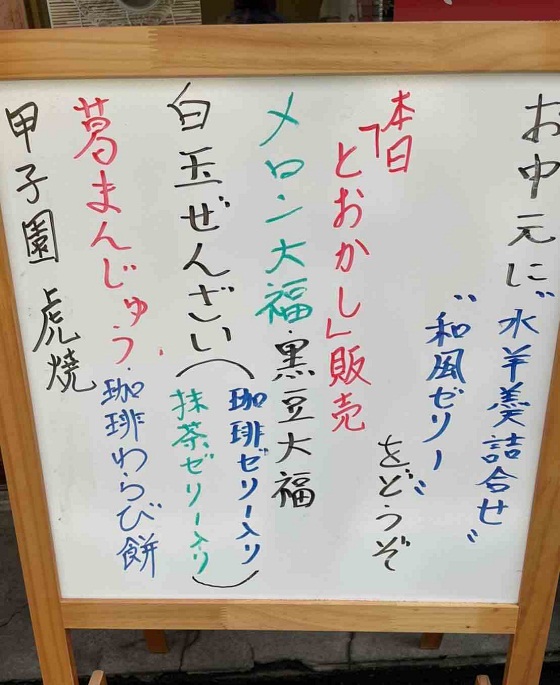 お中元に〝水羊羹詰合せ〟
〝和風ゼリー〟
をどうぞ
本日
「とおかし」販売
メロン大福・黒豆大福
白玉ぜんざい(珈琲ゼリー入り
抹茶ゼリー入り)
葛まんじゅう・珈琲わらび餅
甲子園 虎焼